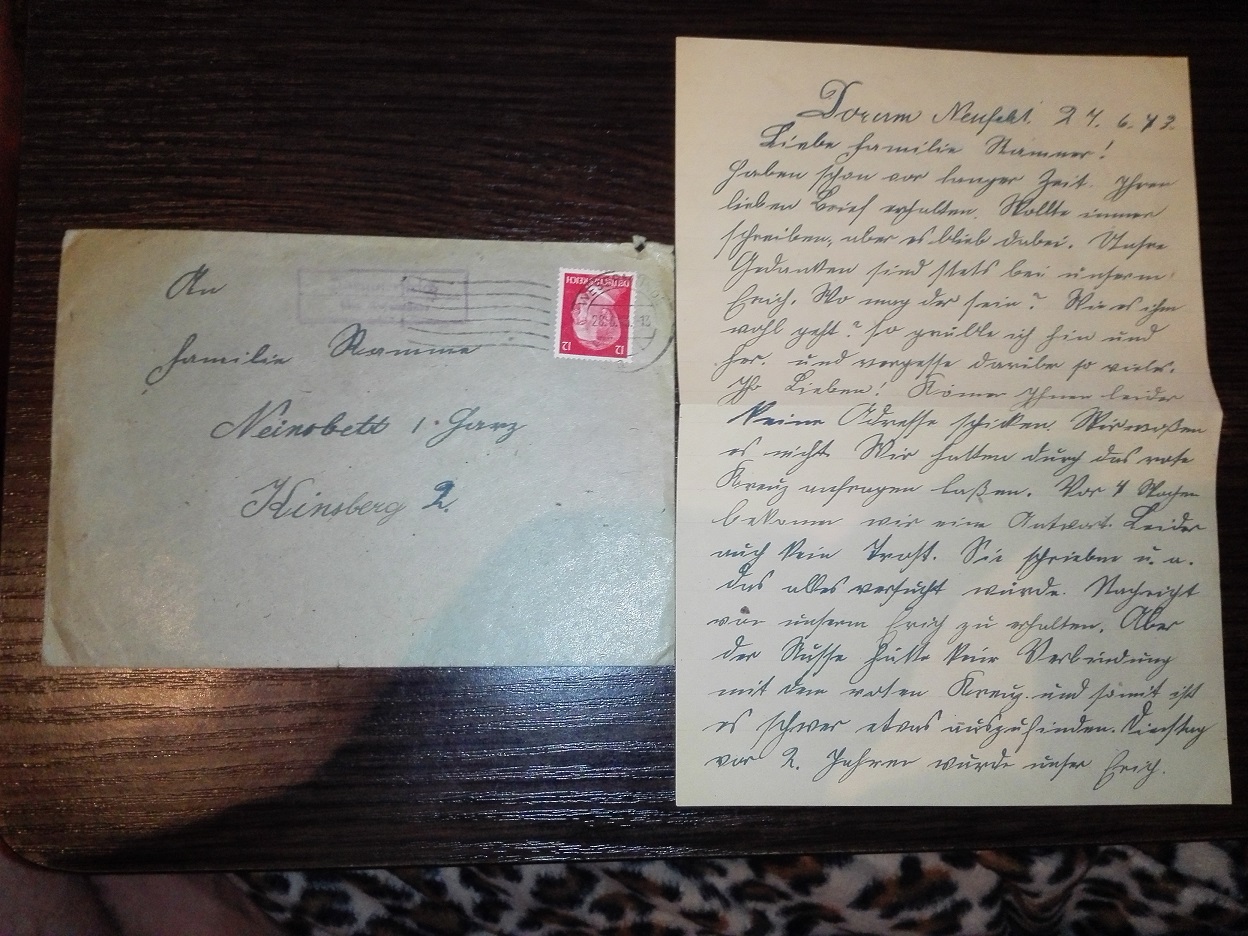 An
Familie Stamme
i. Harz
Kinsberg 2.
DEUTSCHES REICH
12 12
Dorum Neufeld 27. 6. 43.
Liebe Familie Stamme!
Haben schon vor langer Zeit. Ihren
lieben Brief erhalten. Wollte immer
schreiben, aber es blieb dabei. Unsre
Gedanken sind stets bei unserm
Erich. Wo mag der sein? Wie es ihm
wohl geht? So grüble ich hin und
her. und vergesse darüber so vieles.
Ihr Lieben! Können Ihnen leider
keine Adresse schicken. Wir waßen
es nicht. Wir hatten durch das rote
Kreuz anfragen laßen. Vor 4 Wochen
bekamen wir eine Antwort. Leider
auch kein Trost. Sie schrieben u. a.
das alles versucht würde. Nachricht
von unserm Erich zu erhalten. Aber
der Russe hätte keine Verbindung
mit dem roten Kreuz. und somit ist
es schwer etwas auszufinden. Dienstag
vor 2. Jahren wurde unser Erich.